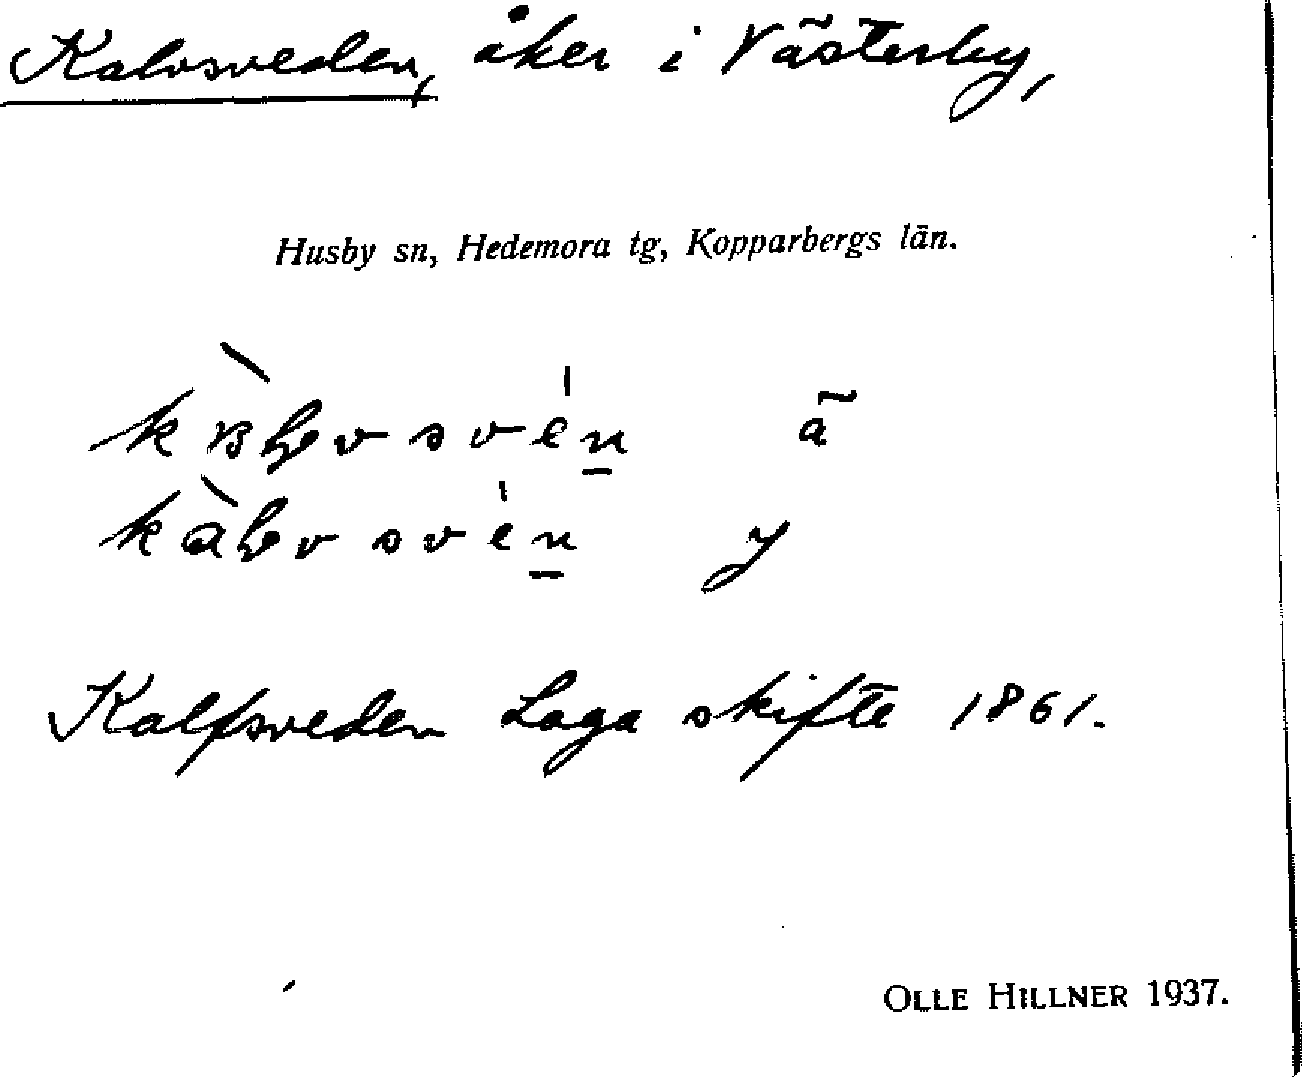 Kalvsveden, åker i Västerby,
Husby sn, Hedemora tg, Kopparbergs län.
ä
y
Kalfsveden Laga skifte 1861.
OLLE HILLNER 1937.